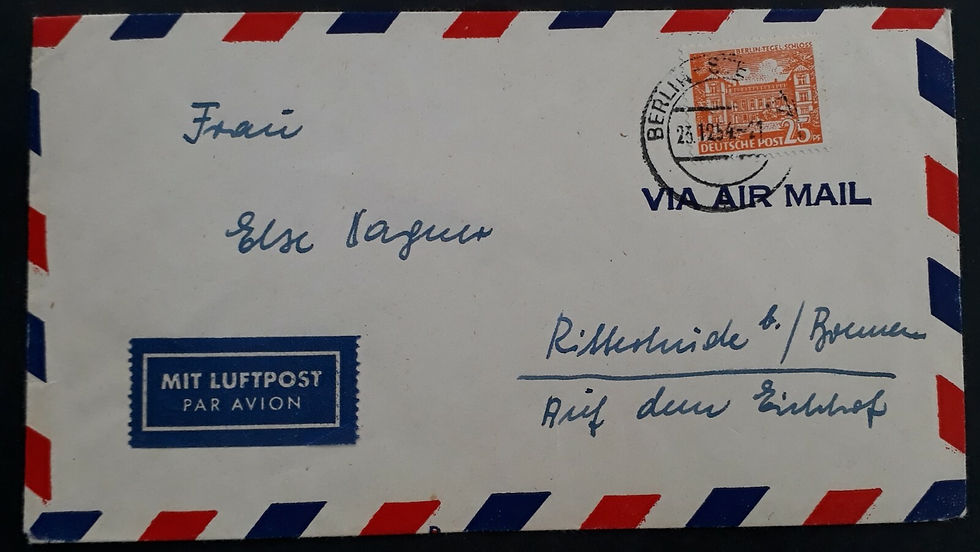 BERLIN-TEGEL-SCHLOSS
DEUTSCHE POST 25 PF
BERLIN
23.12.54.-21
VIA AIR MAIL
Frau
Else Wagner
Ritterhude b./Bremen
Auf dem Eichhof
MIT LUFTPOST
PAR AVION